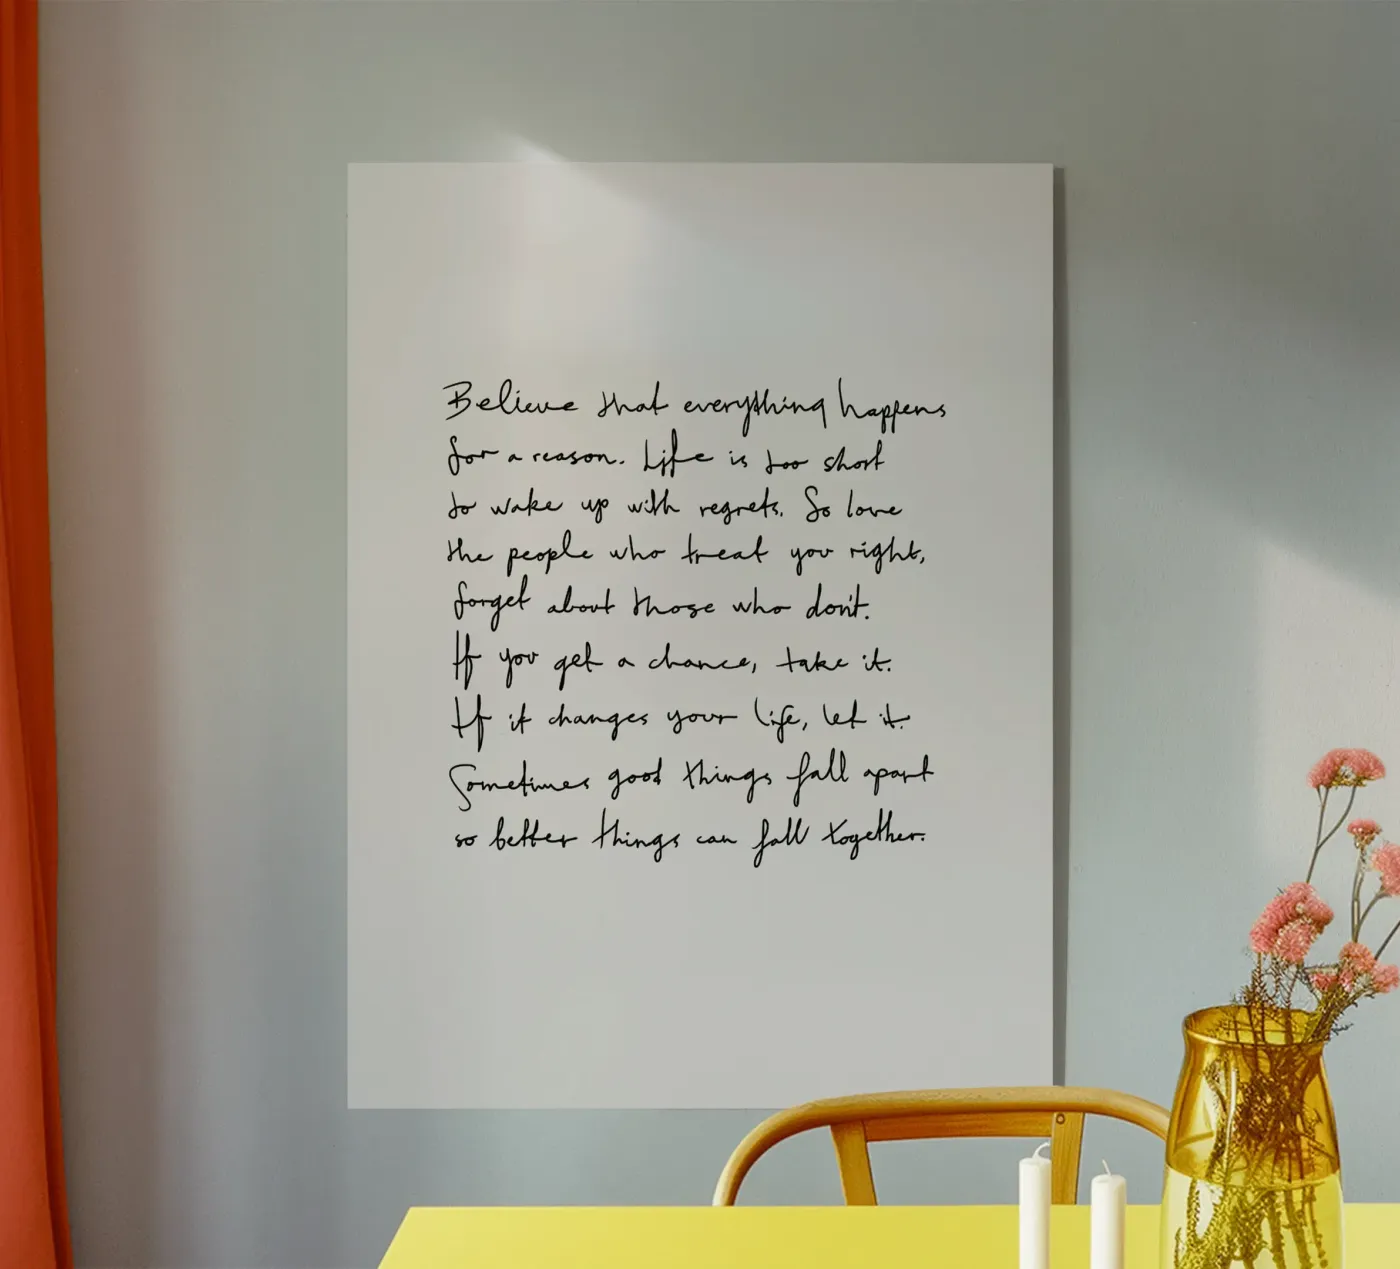 Believe that everything happens
for a reason. Life is too short
to wake up with regrets. So love
the people who treat you right,
forget about those who don't.
If you get a chance, take it.
If it changes your life, let it.
Sometimes good things fall apart
so better things can fall together.